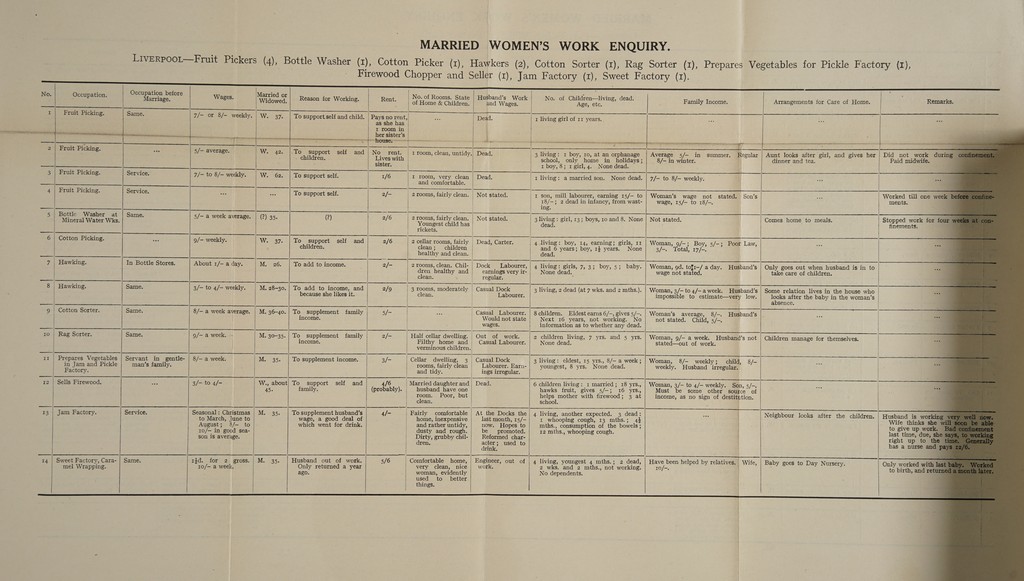 MARRIED WOMEN'S WORK ENQUIRY.
LIVERPOOL—Fruit Pickers (4), Bottle Washer (1), Cotton Picker (1), Hawkers (2), Cotton Sorter (1), Rag Sorter (1), Prepares Vegetables for Pickle Factory (1),
Firewood Chopper and Seller (1), Jam Factory (1), Sweet Factory (1).
No. | Occupation. | Occupation before Marriage. | Wages. | Married or Widowed. | Reason for Working. | Rent. | No. of Rooms. State of Home & Children. | Husband's Work and Wages. | No. of Children—living, dead. Age, etc. | Family Income. | Arrangements for Care of Home. | Remarks.
1 | Fruit Picking. | Same. | 7/- or 8/- weekly. | W. 37. | To support self and child. | Pays no rent, as she has 1 room in her sister's house. | ... | Dead. | 1 living girl of 11 years. | ... | ... | ...
2 | Fruit Picking. | ... | 5/- average. | W. 42. | To support self and children. | No rent. Lives with sister. | 1 room, clean, untidy. | Dead. | 3 living: 1 boy, 10, at an orphanage school, only home in holidays; 1 boy, 8; 1 girl, 4. None dead. | Average 5/- in summer. Regular 8/- in winter. | Aunt looks after girl, and gives her dinner and tea. | Did not work during confinement. Paid midwife.
3 | Fruit Picking. | Service. | 7/- to 8/- weekly. | W. 62. | To support self. | 1/6 | 1 room, very clean and comfortable. | Dead. | 1 living: a married son. None dead. | 7/- to 8/- weekly. | ... | ...
4 | Fruit Picking. | Service. | ... | ... | To support self. | 2/- | 2 rooms, fairly clean. | Not stated. | 1 son, mill labourer, earning 15/- to 18/-; 2 dead in infancy, from wasting. | Woman's wage not stated. Son's wage, 15/- to 18/-. | ... | Worked till one week before confinements.
5 | Bottle Washer at Mineral Water Wks. | Same. | 5/- a week average. | (?) 33. | (?) | 2/6 | 2 rooms, fairly clean. Youngest child has rickets. | Not stated. | 3 living: girl, 13; boys, 10 and 8. None dead. | Not stated. | Comes home to meals. | Stopped work for four weeks at confinements.
6 | Cotton Picking. | ... | 9/- weekly. | W. 37. | To support self and children. | 2/6 | 2 cellar rooms, fairly clean; children healthy and clean. | Dead, Carter. | 4 living: boy, 14, earning; girls, 11 and 6 years; boy, 1½ years. None dead. | Woman, 9/-; Boy, 5/-; Poor Law, 3/-. Total, 17/-. | ... | ...
7 | Hawking. | In Bottle Stores. | About 1/- a day. | M. 26. | To add to income. | 2/- | 2 rooms, clean. Children healthy and clean. | Dock Labourer, earnings very irregular. | 4 living: girls, 7, 3; boy, 5; baby. None dead. | Woman, 9d. to 1/- a day. Husband's wage not stated. | Only goes out when husband is in to take care of children. | ...
8 | Hawking. | Same. | 3/- to 4/- weekly. | M. 28-30. | To add to income, and because she likes it. | 2/9 | 3 rooms, moderately clean. | Casual Dock Labourer. | 3 living, 2 dead (at 7 wks. and 2 mths.). | Woman, 3/- to 4/- a week. Husband's impossible to estimate—very low. | Some relation lives in the house who looks after the baby in the woman's absence. | ...
9 | Cotton Sorter. | Same. | 8/- a week average. | M. 36-40. | To supplement family income. | 5/- | ... | Casual Labourer. Would not state wages. | 8 children. Eldest earns 6/-, gives 5/-. Next 16 years, not working. No information as to whether any dead. | Woman's average, 8/-. Husband's not stated. Child, 5/-. | ... | ...
10 | Rag Sorter. | Same. | 9/- a week. | M. 30-35. | To supplement family income. | 2/- | Half cellar dwelling. Filthy home and verminous children. | Out of work. Casual Labourer. | 2 children living, 7 yrs. and 5 yrs. None dead. | Woman, 9/- a week. Husband's not stated—out of work. | Children manage for themselves. | ...
11 | Prepares Vegetables in Jam and Pickle Factory. | Servant in gentleman's family. | 8/- a week. | M. 35. | To supplement income. | 3/- | Cellar dwelling, 3 rooms, fairly clean and tidy. | Casual Dock Labourer. Earnings irregular. | 3 living: oldest, 15 yrs., 8/- a week; youngest, 8 yrs. None dead. | Woman, 8/- weekly; child, 8/- weekly. Husband irregular. | ... | ...
12 | Sells Firewood. | ... | 3/- to 4/- | W., about 45. | To support self and family. | 4/6 (probably). | Married daughter and husband have one room. Poor, but clean. | Dead. | 6 children living: 1 married; 18 yrs., hawks fruit, gives 5/-; 16 yrs., helps mother with firewood; 3 at school. | Woman, 3/- to 4/- weekly. Son, 5/-. Must be some other source of income, as no sign of destitution. | ... | ...
13 | Jam Factory. | Service. | Seasonal: Christmas to March, June to August; 8/- to 10/- in good season is average. | M. 35. | To supplement husband's wage, a good deal of which went for drink. | 4/- | Fairly comfortable home, inexpensive and rather untidy, dusty and rough. Dirty, grubby children. | At the Docks the last month, 15/- now. Hopes to be promoted. Reformed character; used to drink. | 4 living, another expected. 3 dead: 1 whooping cough, 13 mths.; 4½ mths., consumption of the bowels; 12 mths., whooping cough. | ... | Neighbour looks after the children. | Husband is working very well now. Wife thinks she will soon be able to give up work. Bad confinement last time, due, she says, to working right up to the time. Generally has a nurse and pays 12/6.
14 | Sweet Factory, Caramel Wrapping. | Same. | 1½d. for 2 gross. 10/- a week. | M. 35. | Husband out of work. Only returned a year ago. | 5/6 | Comfortable home, very clean, nice woman, evidently used to better things. | Engineer, out of work. | 4 living, youngest 4 mths.; 2 dead, 2 wks. and 2 mths., not working. No dependents. | Have been helped by relatives. Wife, 10/-. | Baby goes to Day Nursery. | Only worked with last baby. Worked to birth, and returned a month later.